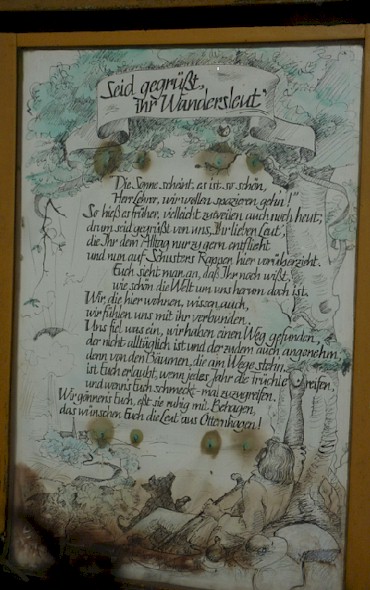 Seid gegrüßt,
ihr Wandersleut'
"Die Sonne scheint, es ist so schön,
Herr Lehrer, wir wollen spazieren gehn!"
So hieß es früher, vielleicht zuweilen auch noch heut;
drum seid gegrüßt von uns, "Ihr lieben Leut",
die Ihr dem Alltag nur zu gern entflieht
und nun auf Schusters Rappen hier vorüberzieht.
Euch sieht man an, daß Ihr noch wißt,
wie schön die Welt um uns herum doch ist.
Wir, die hier wohnen, wissen auch,
wir fühlen uns mit ihr verbunden.
Uns fiel was ein, wir haben einen Weg gefunden,
der nicht alltäglich ist und der zudem auch angenehm,
denn von den Bäumen, die am Wege stehn,
ist Euch erlaubt, wenn jedes Jahr die Früchte reifen,
und wenn's Euch schmeckt - mal zuzugreifen.
Wir gönnen's Euch, eßt sie ruhig mit Behagen,
das wünschen Euch die Leut aus Ottenhaven!